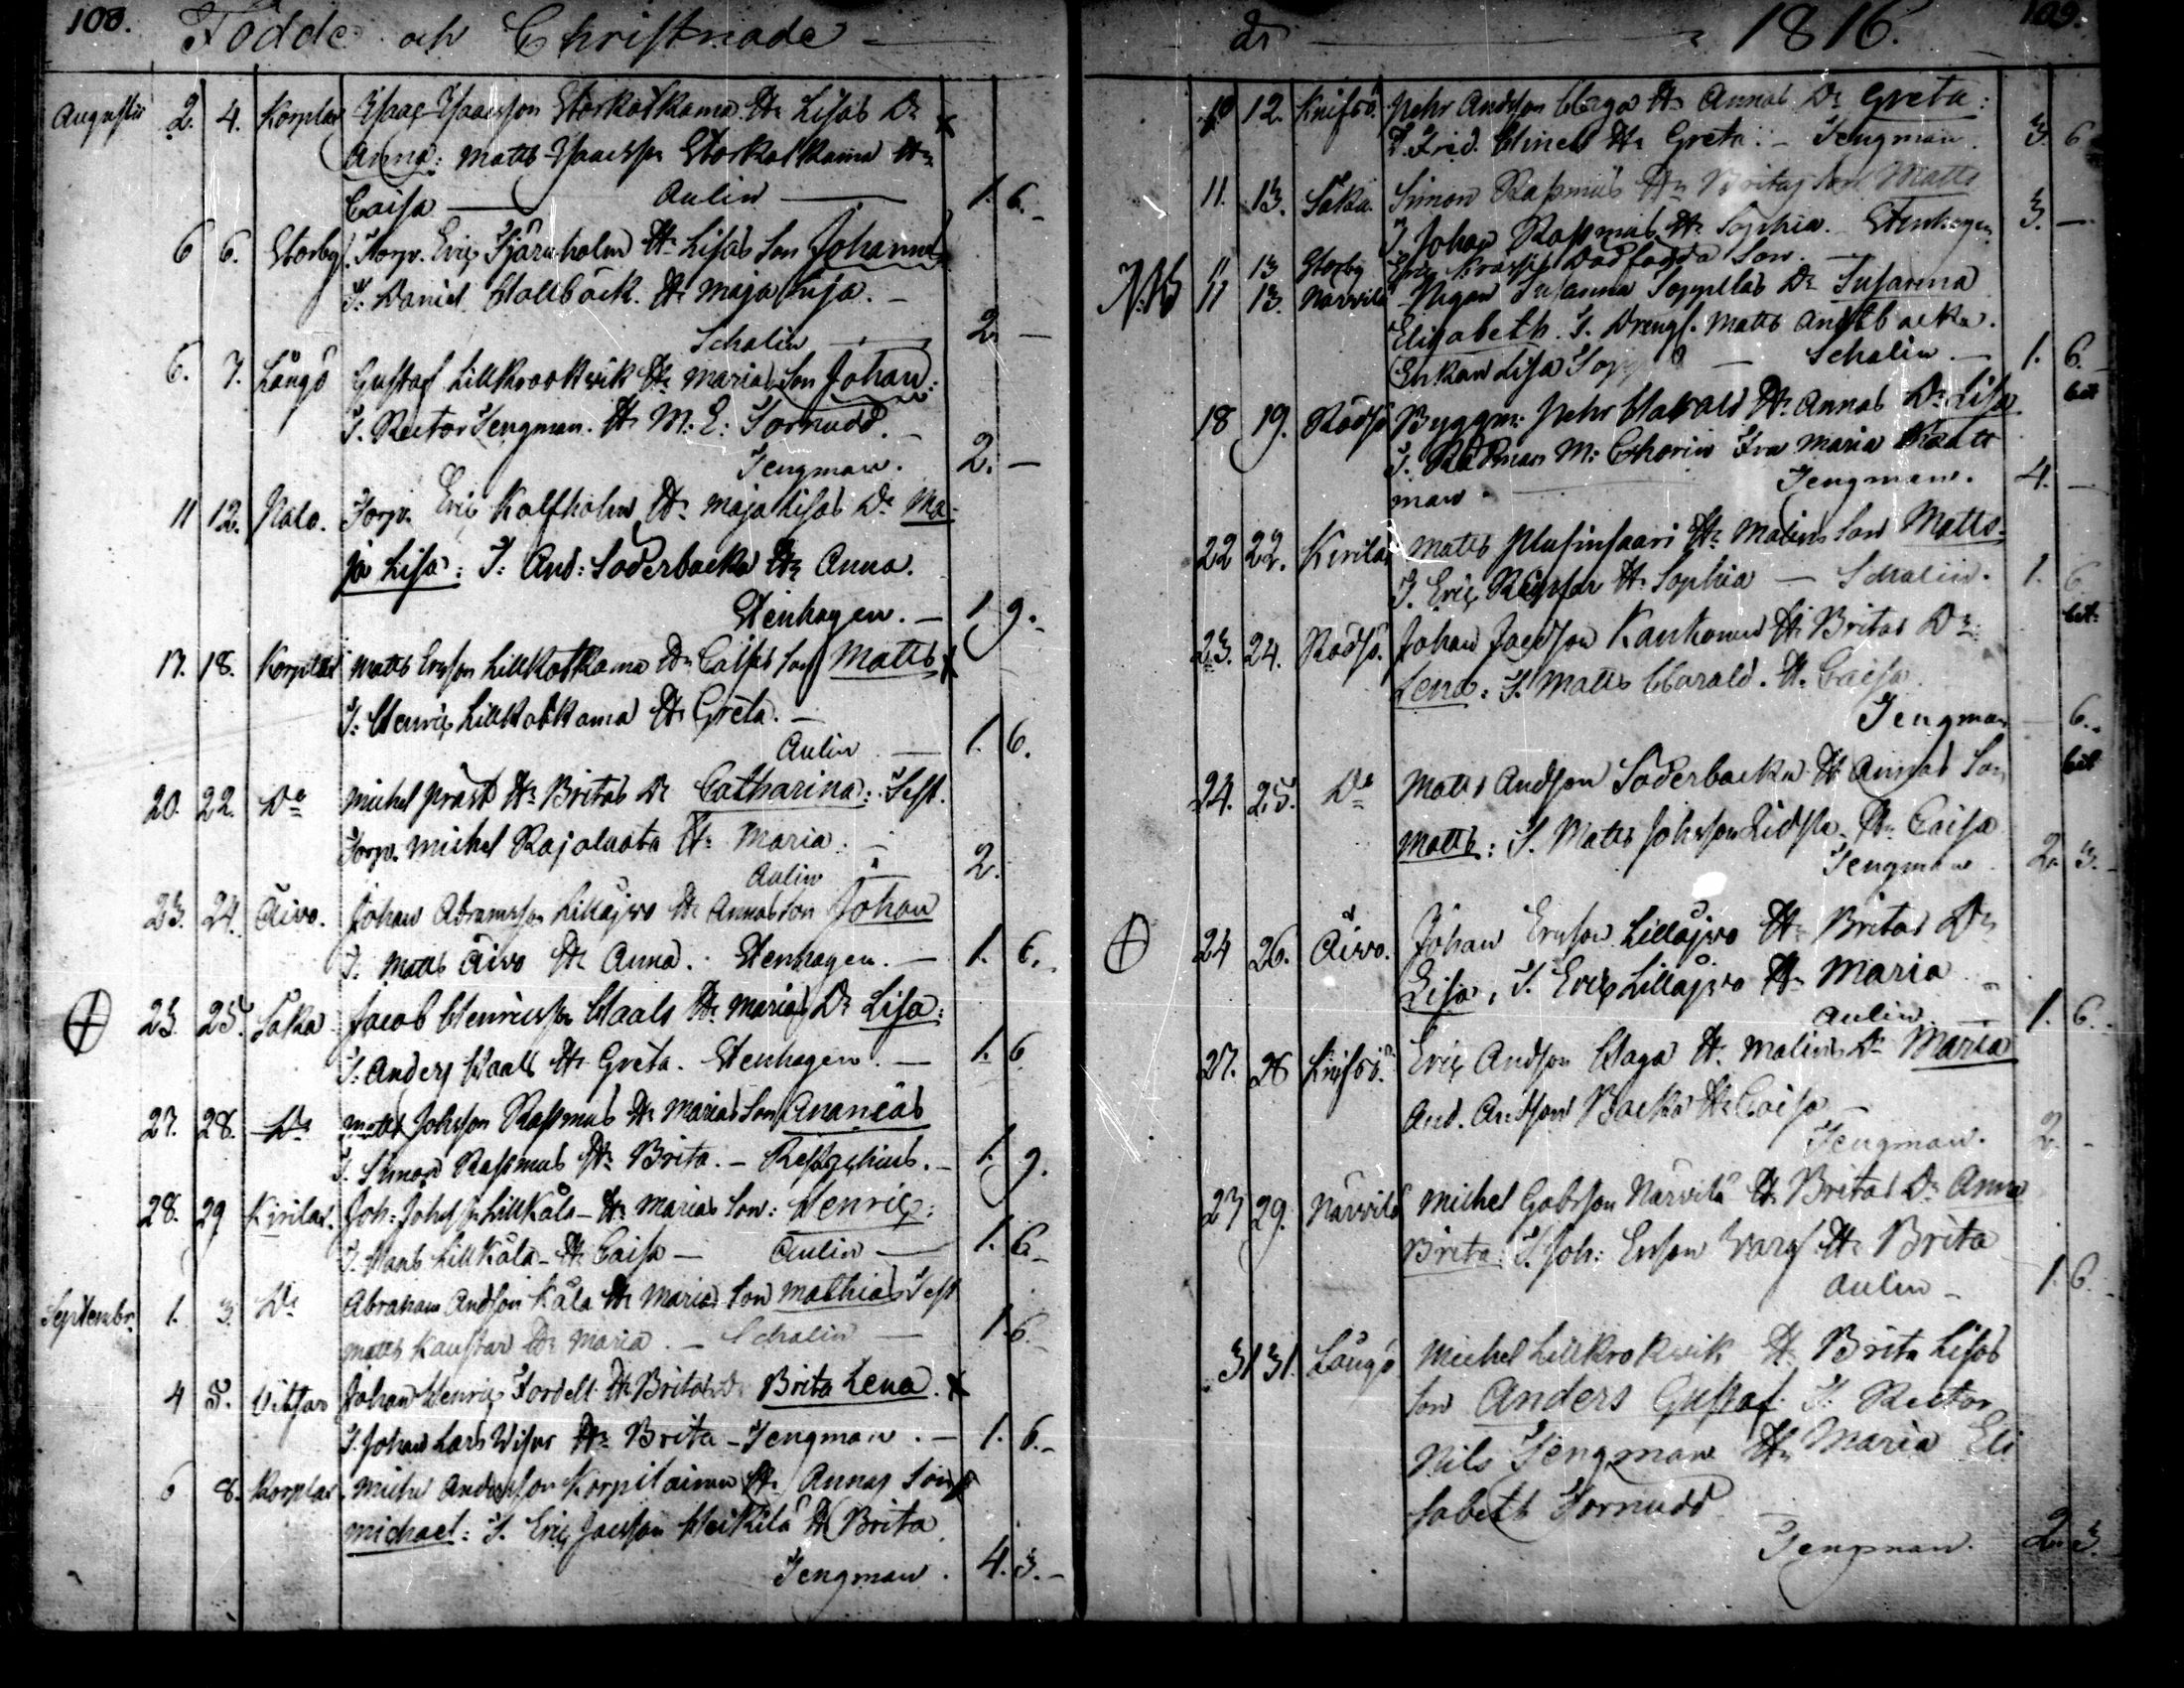 108.
Födde och Christnade
Augustii 2. 4. Korplax Isaac Isaacsson Storkotkama H: Lisas Dr
Anna: Matts Isaacsson Storkotkama H:
Caisa Aulin 1. 6.
6 6. Storby. Torp. Eric Stjärnholm H: Lisas Son Johannes
T. Daniel Hallbäck. H: Maja Caja.
Schalin 2. –
6. 7. Långö Gustaf Lillkrookwik H: Marias Son Johan:
T. Rector Tengman. H: M: E: Tornudd.
Tengman. 2. –
11 12. Palo. Torp. Eric Kalfholm H: Maja Lisas Dr Ma-
ja Lisa: T: And: Söderbacka H: Anna.
Stenhagen. – 1. 9.
17. 18. Korplax Matts Ersson Lillkotkama H: Caisas Son Matts
T. Henric Lillkotkama H: Greta. –
Aulin – 1. 6.
20. 22. Do Michel Präst H: Britas Dr Catharina: Test.
Torp. Michel Rajaluoto H: Maria.
Aulin 2.
23. 24. Åivo. Johan Abramsson Lillåjvo H: Annas Son Johan
T. Matts Åivo H: Anna. Stenhagen. – 1. 6.
23. 25. Såka Jacob Henricsson Haals H: Marias Dr Lisa:
T. Anders Haals H: Greta. Stenhagen. – 1. 6
27. 28. Do Matts Johsson Rasmus H: Marias Son Ananias
T. Simon Rasmus H: Brita. – 1. 9.
28. 29 Kirilax. Joh: Johsson Lillkåla – H: Marias Son: Henric:
T. Hans Lillkåla – H: Caisa – Aulin – 1. 6.
Septembr. 1. 3. Do Abraham Andsson Kåla H: Marias Son Mathias Test
Matts Kaustar H: Maria. – Schalin – 1. 6.
4 5. Witsar Johan Henric Fordell H: Britas Dr Brita Lena.
T. Johan Lars Wisar H: Brita – Tengman. – 1. 6.
6 8. Korplax. Michel Andersson Korpilainen H: Annas Son
Michael: T. Eric Jacsson Heikilä H: Brita
Tengman. 4. 3. –
do 1816. 109.
10 12. Knifsö. Pehr Andsson Haga H: Annas Dr Greta:
T. Frid. H: Greta. – Tengman. 3. 6
11. 13. Såka. Simon Rasmus H: Britas Son Matts
T. Johan Rasmus H: Sophia. Stenhagen 3. –
11 13 Storby Eric dödfödda Son. –
N.B 11 13. Närvilä Pigan Susanna Soppelas Dr Susanna
Elisabeth. T. Drengs. Matts Andtbacka.
Enkan Lisa – Schalin. – 1. 6.
18 19. Rödsö Byggm: Pehr Harald H: Annas Dr Lisa
T. Rådman M: Chorin Fru Maria Kaatt
man. Tengman. 4. –
22 22. Kirilax Matts Plusinsaari H: Malins Son Matts.
T. Eric H: Sophia – Schalin. 1. 6
23. 24. Rödsö. Johan Jacsson Kankonen H: Britas Dr:
Lena: T. Matts Harald. H: Caisa.
Tengman – 6.
24. 25. Do Matts Andsson Söderbacka H: Annas Son
Matts: T. Matts Johsson H: Caisa
Tengman 2. 3.
24 26. Åivo. Johan Ersson Lillåjvo H: Britas Dr
Lisa, T. Eric Lillåjvo H: Maria
Aulin – 1. 6.
27. 28 Knifsö. Eric Andsson Haga H: Malins Dr Maria
And. Andsson Backa H: Caisa –
Tengman. 2. –
27 29. Närvilä Michel Gabsson Närvilä H: Britas Dr Anna
Brita: T. Joh: Ersson Warg H: Brita
Aulin – 1. 6.
31 31. Långö Michel Lillkrokwik H: Brita Lisas
Son Anders Gustaf. T: Rector
Nils Tengman H: Maria Eli
sabeth Tornudd
Tengman. 2. 3.